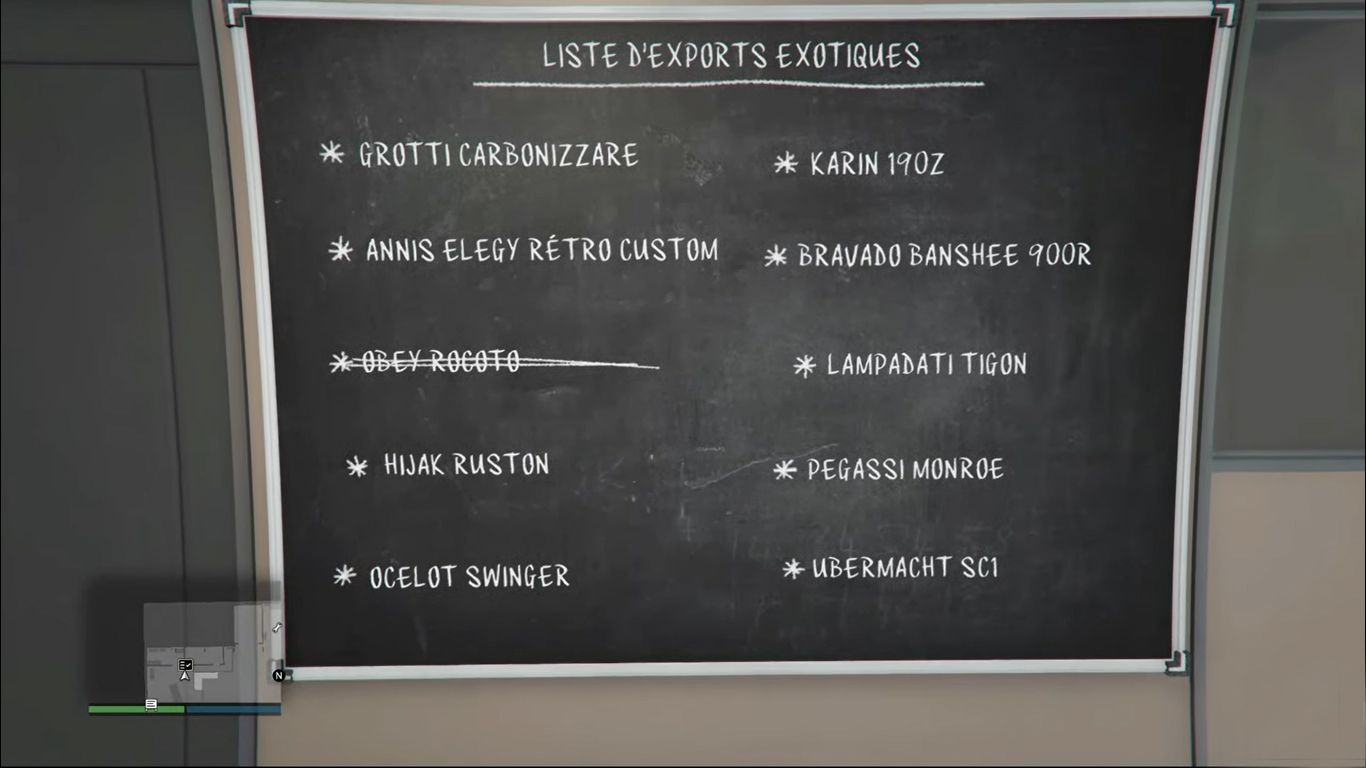 LISTE D'EXPORTS EXOTIQUES
* GROTTI CARBONIZZARE
* ANNIS ELEGY RÉTRO CUSTOM
* OBEY ROCOTO
* HIJAK RUSTON
* OCELOT SWINGER
* KARIN 190Z
* BRAVADO BANSHEE 900R
* LAMPADATI TIGON
* PEGASSI MONROE
* UBERMACHT SC1
N